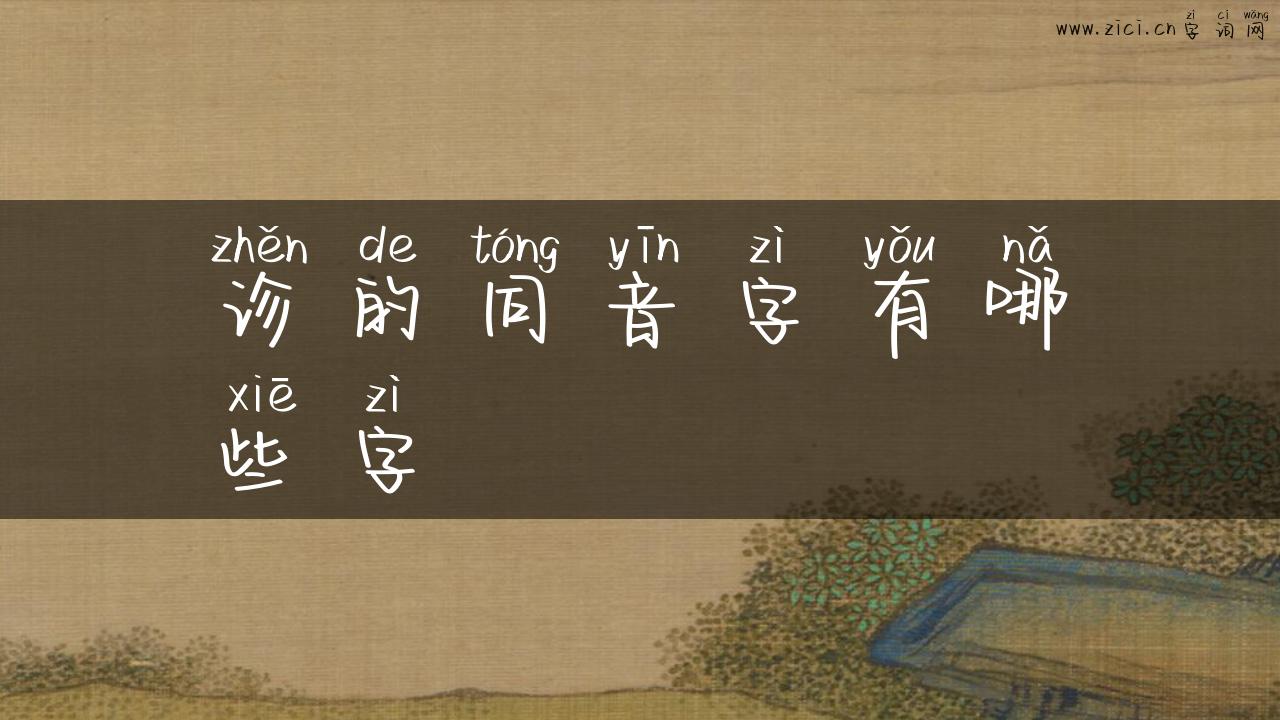 zì cí wǎng
www.zici.cn 字词网
zhěn de tóng yīn zì yǒu nǎ
诊的同音字有哪
xiē zì
些字